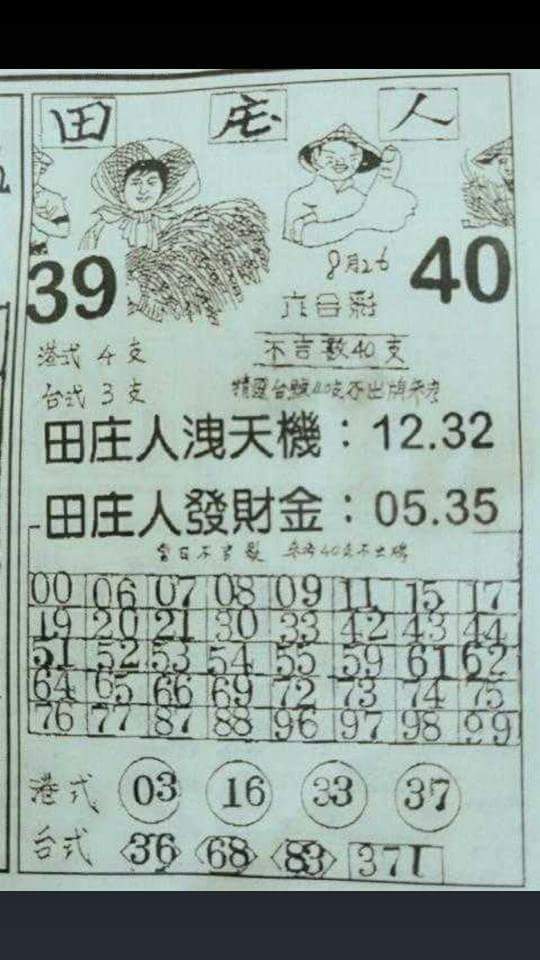 田 庄 人
39
40
8月26
六合彩
港式 4支
不吉數40支
台式 3支
精選台號40支不出牌參考
田庄人洩天機：12.32
田庄人發財金：05.35
當日不吉數 參考40支不出牌
00 06 07 08 09 11 15 17
19 20 21 30 33 42 43 44
51 52 53 54 55 59 61 62
64 65 66 69 72 73 74 75
76 77 87 88 96 97 98 99
港式 03 16 33 37
台式 36 68 83 371